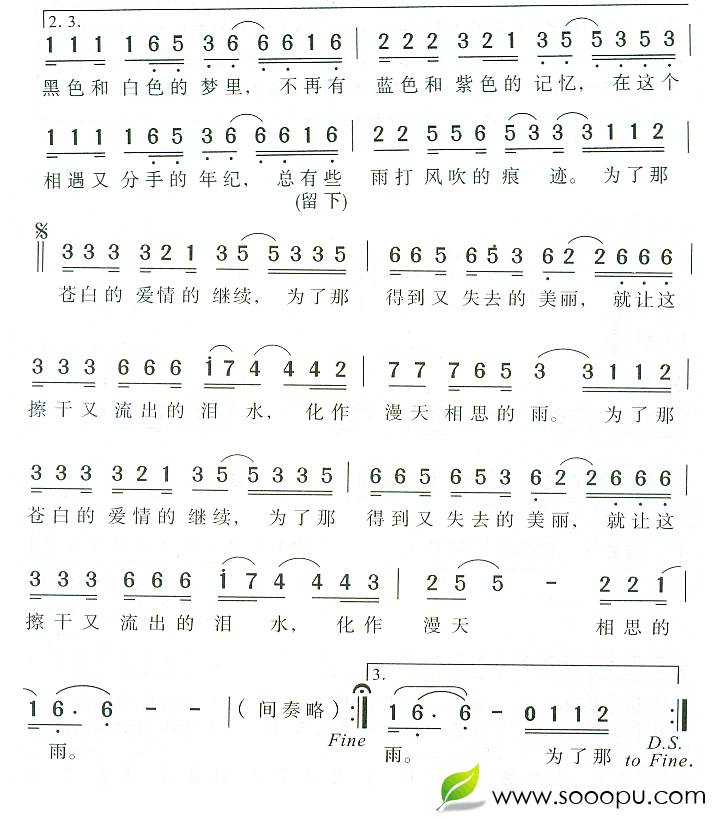 2. 3.
1 1 1 1 6 5 3 6 6 6 1 6 | 2 2 2 3 2 1 3 5 5 3 5 3 |
黑色和 白色的 梦里, 不再有 蓝色和 紫色的 记忆, 在这个
1 1 1 1 6 5 3 6 6 6 1 6 | 2 2 5 5 6 5 3 3 3 1 1 2 |
相遇又 分手的 年纪, 总有些 雨打 风吹的 痕 迹。 为了那
(留下)
3 3 3 3 2 1 3 5 5 3 3 5 | 6 6 5 6 5 3 6 2 2 6 6 6 |
苍白的 爱情的 继续, 为了那 得到又 失去的 美丽, 就让这
3 3 3 6 6 6 1 7 4 4 4 2 | 7 7 7 6 5 3 3 1 1 2 |
擦干又 流出的 泪 水, 化作 漫天 相思的 雨。 为了那
3 3 3 3 2 1 3 5 5 3 3 5 | 6 6 5 6 5 3 6 2 2 6 6 6 |
苍白的 爱情的 继续, 为了那 得到又 失去的 美丽, 就让这
3 3 3 6 6 6 1 7 4 4 4 3 | 2 5 5 - 2 2 1 |
擦干又 流出的 泪 水, 化作 漫天 相思的
3.
1 6 · 6 - - | ( 间奏略 ) :| 1 6 · 6 - 0 1 1 2 :|
雨。 Fine 雨。 为了那 D.S.
to Fine.
www.sooopu.com